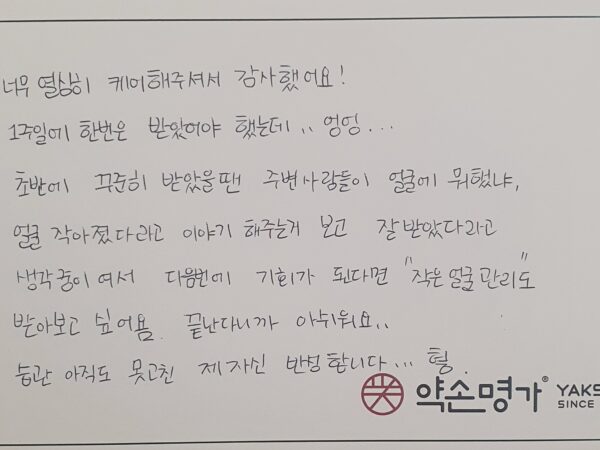 너무 열심히 케어해주셔서 감사했어요!
1주일에 한번은 받았어야 했는데.. 엉엉...
초반에 꾸준히 받았을땐 주변사람들이 얼굴에 뭐했냐,
얼굴 작아졌다라고 이야기 해주는거 보고 잘받았다라고
생각중이여서 다음번에 기회가 된다면 "작은얼굴관리"도
받아보고 싶어욤. 끝난다니까 아쉬워요..
습관 아직도 못고친 제자신 반성합니다... 힝.
약손명가® YAKS
SINCE